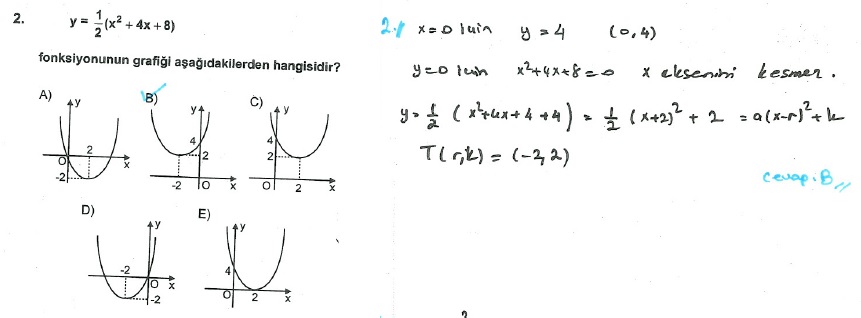 2.
y = 1/2 (x² + 4x + 8)
fonksiyonunun grafiği aşağıdakilerden hangisidir?
A) y 2 O x -2
B) y 4 2 -2 O x
C) y 4 2 O 2 x
D) y -2 O x -2
E) y 4 O 2 x
2-) x=0 için y = 4 (0,4)
y=0 için x²+4x+8=0 x eksenini kesmez.
y = 1/2 (x²+4x+4+4) = 1/2 (x+2)² + 2 = a(x-r)²+k
T(r,k) = (-2,2)
cevap: B //